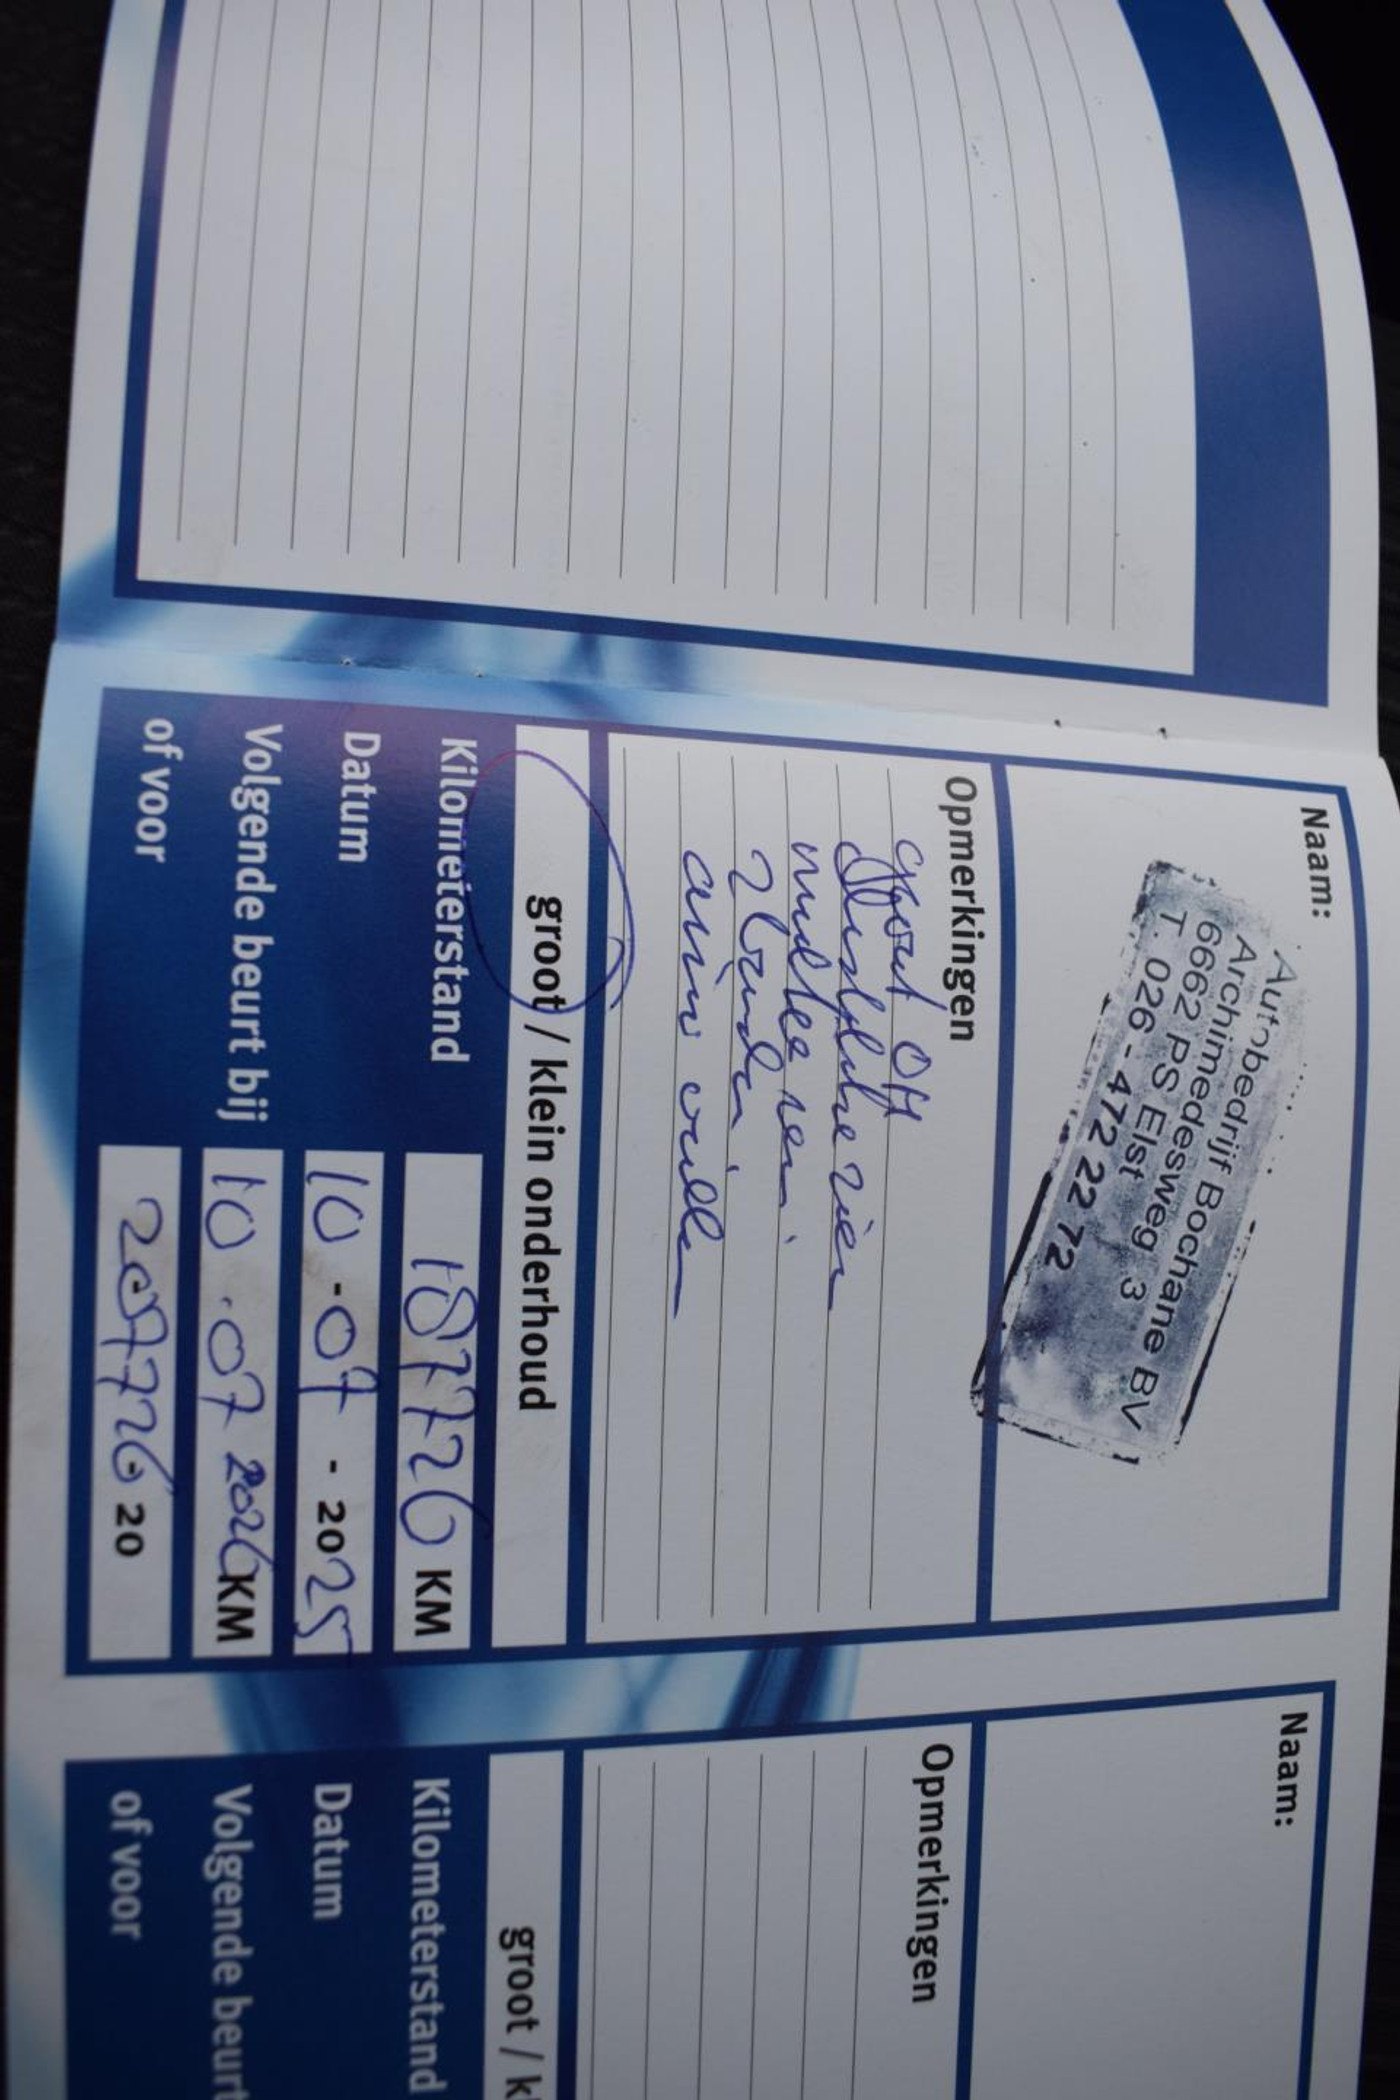 Naam:
Autobedrijf Bochane BV
Archimedesweg 3
6662 PS Elst
T. 026 - 472 22 72
Opmerkingen
groot OH
2 banden
groot / klein onderhoud
Kilometerstand 187726 KM
Datum 10-07-2025
Volgende beurt bij 10.07 2026 KM
of voor 207726 - 20
Naam:
Opmerkingen
groot / kl
Kilometerstand
Datum
Volgende beurt
of voor